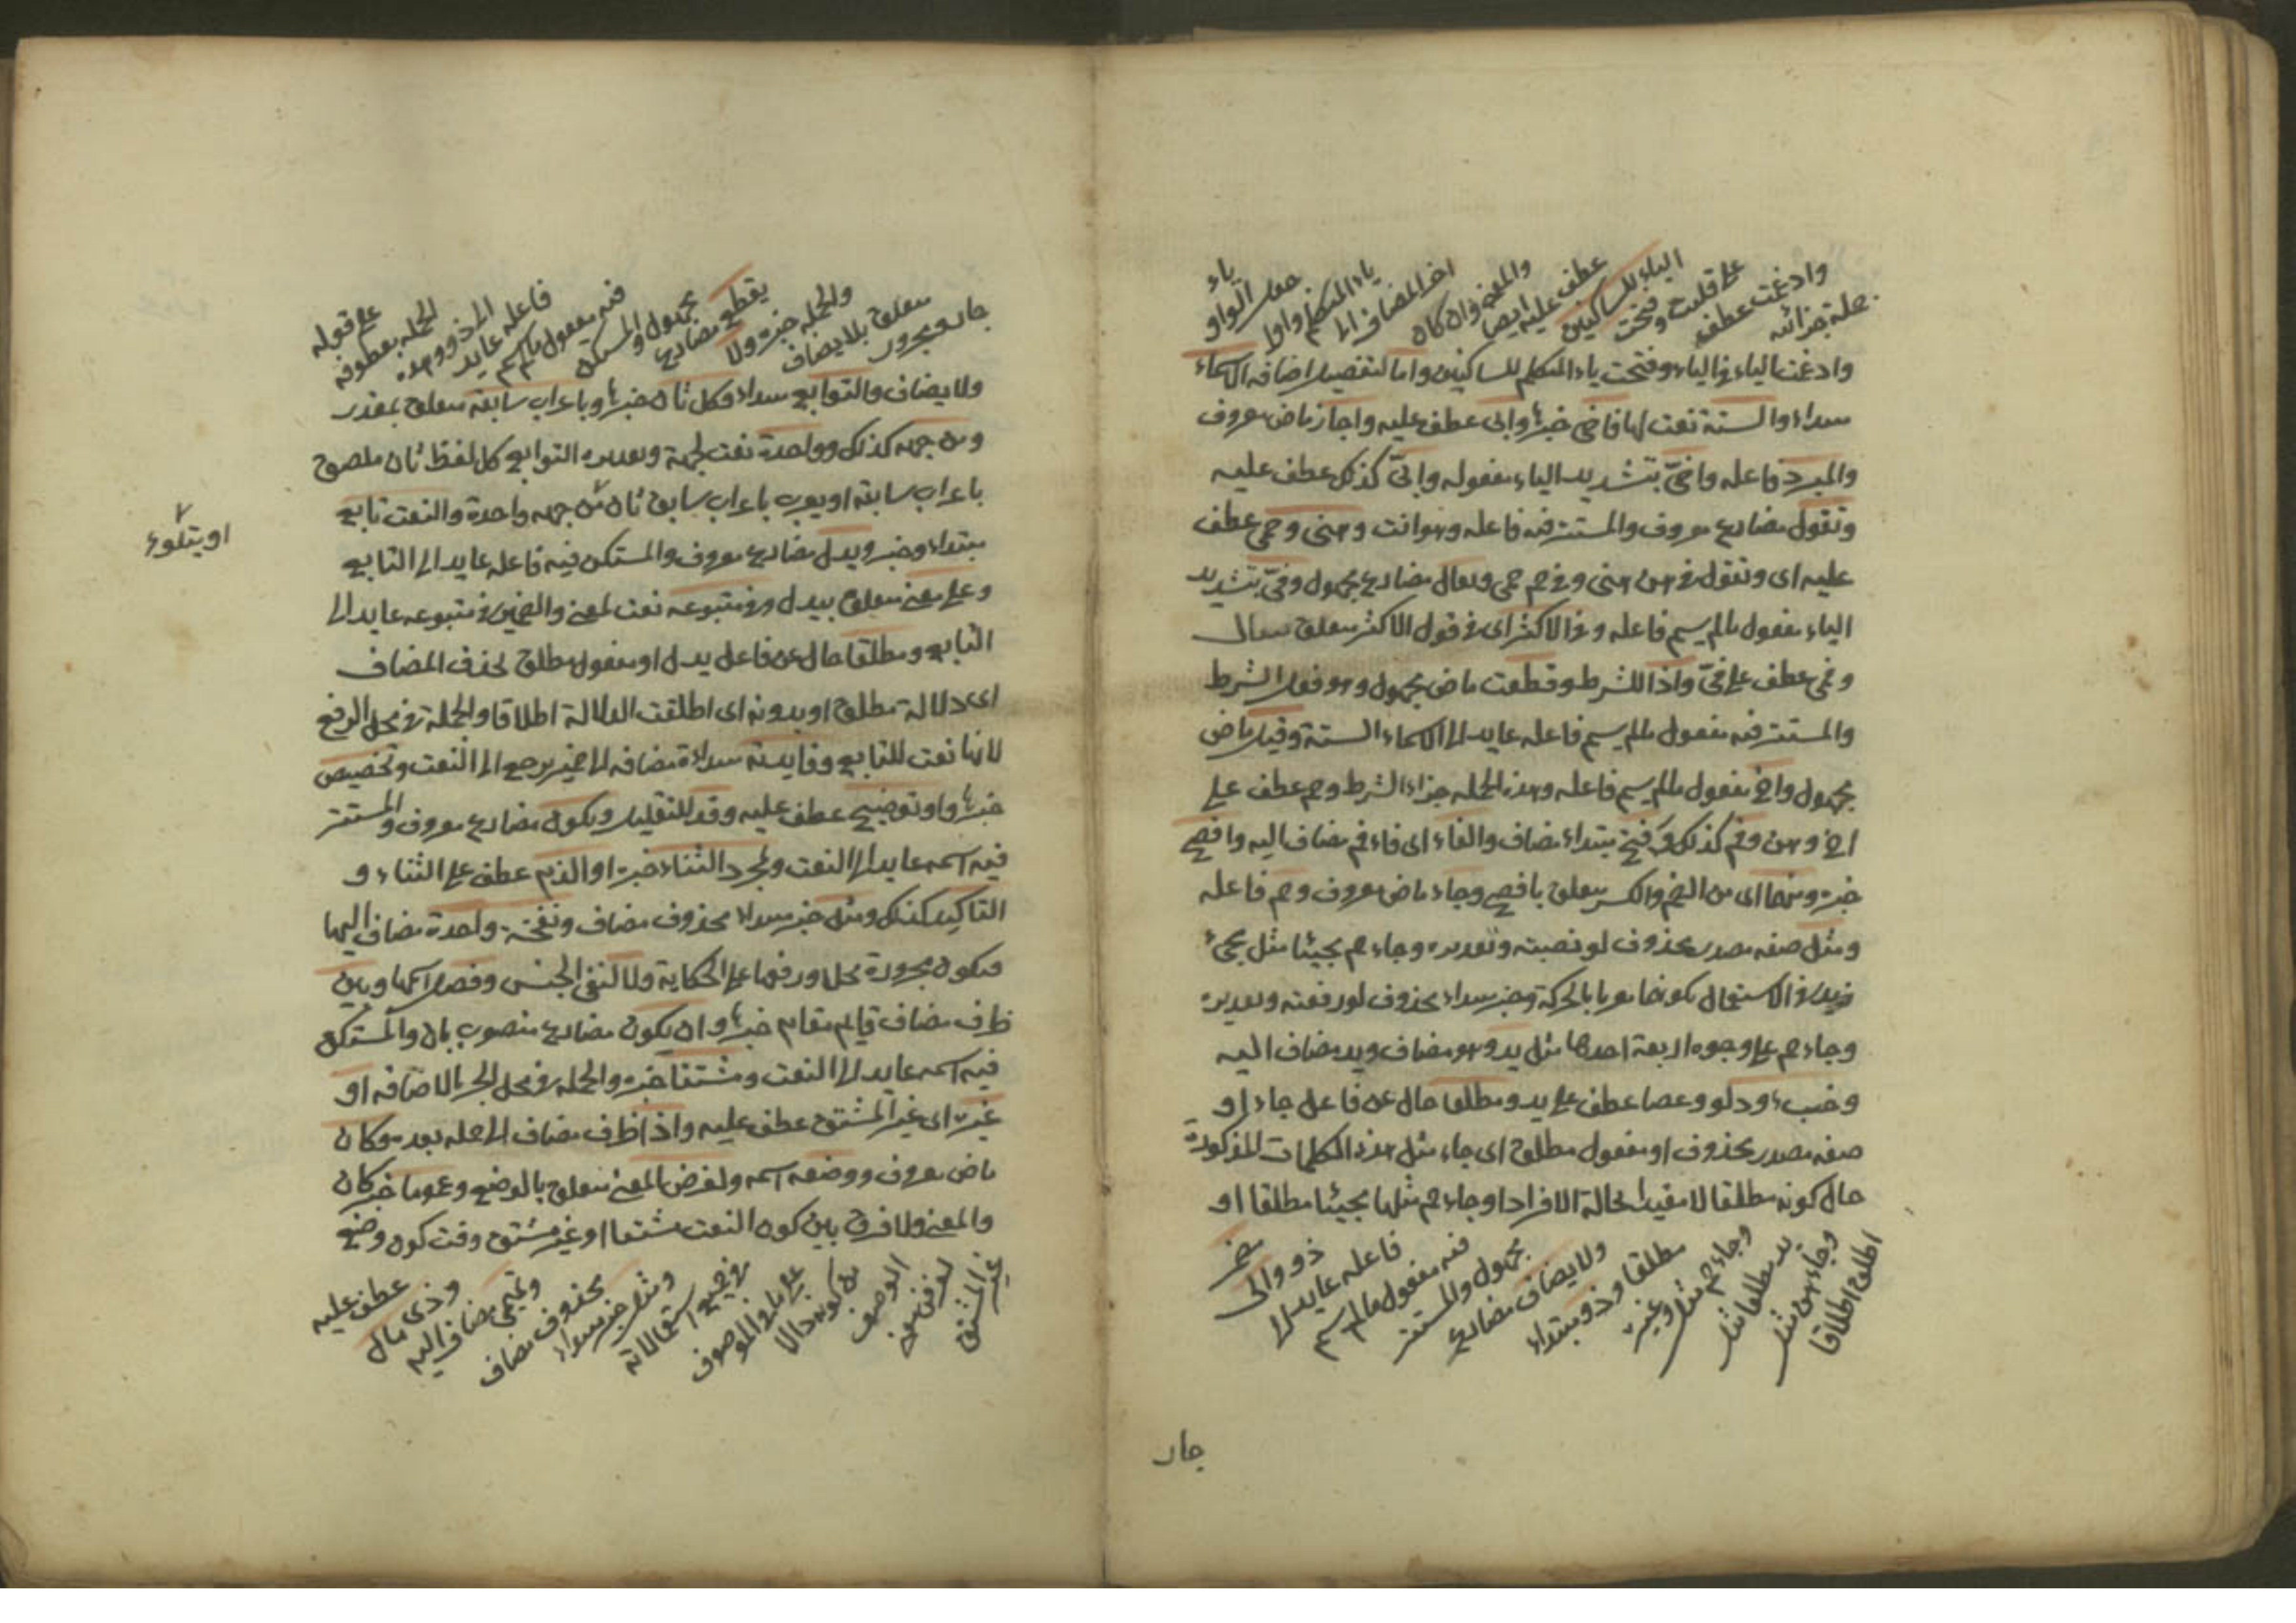 وادغمت عطف
جملة جزائه
على قلبت وفتحت
الياء للساكنين
عطف عليه ايضا
والمعنى وان كان
اخر المضاف الى
ياء المتكلم واوا
جعل الواو
ياء
وادغمت الياء في الياء وفتحت ياء المتكلم للساكنين واما لتفصيل اضافه الاسماء
مبتداء والستة نعت لها فاخى خبرها وابى عطف عليه واجاز ماض معروف
والمبرد فاعله واخىّ بتشديد الياء مفعوله وابىّ كذلك عطف عليه
وتقول مضارع معروف والمستتر فيه فاعله وهو انت وهنى وحمى عطف
عليه اى وتقول فى هن هنى وفى حم حمى ويقال مضارع مجهول وفىّ بتشديد
الياء مفعول مالم يسم فاعله وفى الاكثر اى فى قول الاكثر متعلق بيقال
وفمى عطف على فىّ واذا للشرط وقطعت ماض مجهول وهو فعل الشرط
والمستتر فيه مفعول مالم يسم فاعله عايد الى الاسماء الستة وقيل ماض
مجهول واخ مفعول مالم يسم فاعله وهذه الجمله جزاء الشرط وحم عطف على
اخ وهن وفم كذلك وفتح مبتداء مضاف والفاء اى فاء فم مضاف اليه وافصح
خبره ومنهما اى من الضم والكسر متعلق بافصح وجاء ماض معروف وحم فاعله
ومثل صفه مصدر محذوف لو نصبته وتقديره وجاء حم مجيئا مثل مجئ
فى الاستعمال بكونها معربا بالحركة وخبر مبتداء محذوف لو رفعته وتقديره
وجاء حم على وجوه اربعة احدها مثل يد وهو مضاف ويد مضاف اليه
وخبء ودلو وعصا عطف على يد ومطلقا حال عن فاعل جاء او
صفه مصدر محذوف او مفعول مطلق اى جاء مثل هذه الكلمات المذكورة
حال كونه مطلقا لا مقيدا بحالة الافراد او جاء حم مثلها مجيئا مطلقا او
اطلق اطلاقا
وجاء هن مثل
يد مطلقا مثل
وجاء حم مثل وغيره
مطلقا وذو مبتداء
ولا يضاف مضارع
مجهول والمستتر
فيه مفعول مالم يسم
فاعله عايد الى
ذو والى
مضمر
جار
جار ومجرور
متعلق بلا يضاف
والجمله خبره ولا
يقطع مضارع
مجهول والمستكن
فيه مفعول مالم يسم
فاعله عايد
الى ذو وهذه
الجمله معطوفه
على قوله
ولا يضاف والتوابع مبتداء وكل ثان خبرها وباعراب سابقه متعلق بمقدر
ومن جهه كذلك وواحدة نعت لجهة وتقديره التوابع كل لفظ ثان ملصوق
باعراب سابقه او يعرب باعراب سابق ثان من جهه واحدة والنعت تابع
او يتلوه
مبتداء وخبر ويدل مضارع معروف والمستكن فيه فاعله عايد الى التابع
وعلى معنى متعلق بيدل وفى متبوعه نعت لمعنى والضمير فى متبوعه عايد الى
التابع ومطلقا حال عن فاعل يدل او مفعول مطلق بحذف المضاف
اى دلالة مطلق او بدونه اى اطلقت الدلالة اطلاقا والجملة فى محل الرفع
لانها نعت للتابع وفايدته مبتداء مضافه الى ضمير يرجع الى النعت وتخصيص
خبرها او توضيح عطف عليه وقد للتقليل ويكون مضارع معروف والمستتر
فيه اسمه عايد الى النعت ولمجرد الثناء خبره او الذم عطف على الثناء و
التاكيد كذلك ومثل خبر مبتداء محذوف مضاف ونفخة واحدة مضاف اليها
فيكون مجرورة محلا ورفعها على الحكاية ولا لنفى الجنس وفصل اسمها وبين
ظرف مضاف قايم مقام خبرها وان يكون مضارع منصوب بان والمستكن
فيه اسمه عايد الى النعت ومشتقا خبره والجمله فى محل الجر بالاضافه او
غيره اى غير المشتق عطف عليه واذا ظرف مضاف الى جمله بعده وكان
ماض معروف ووضعه اسمه ولغرض المعنى متعلق بالوضع وعموما خبر كان
والمعنى ولا فرق بين كون النعت مشتقا او غير مشتق وقت كون وضع
غير المشتق
لغرض معنى
الوصف
من كونه دالا
على الموصوف
فى جميع استعمالاته
ومثل خبر مبتداء
محذوف مضاف
وتميمى مضاف اليه
وذى مال
عطف عليه